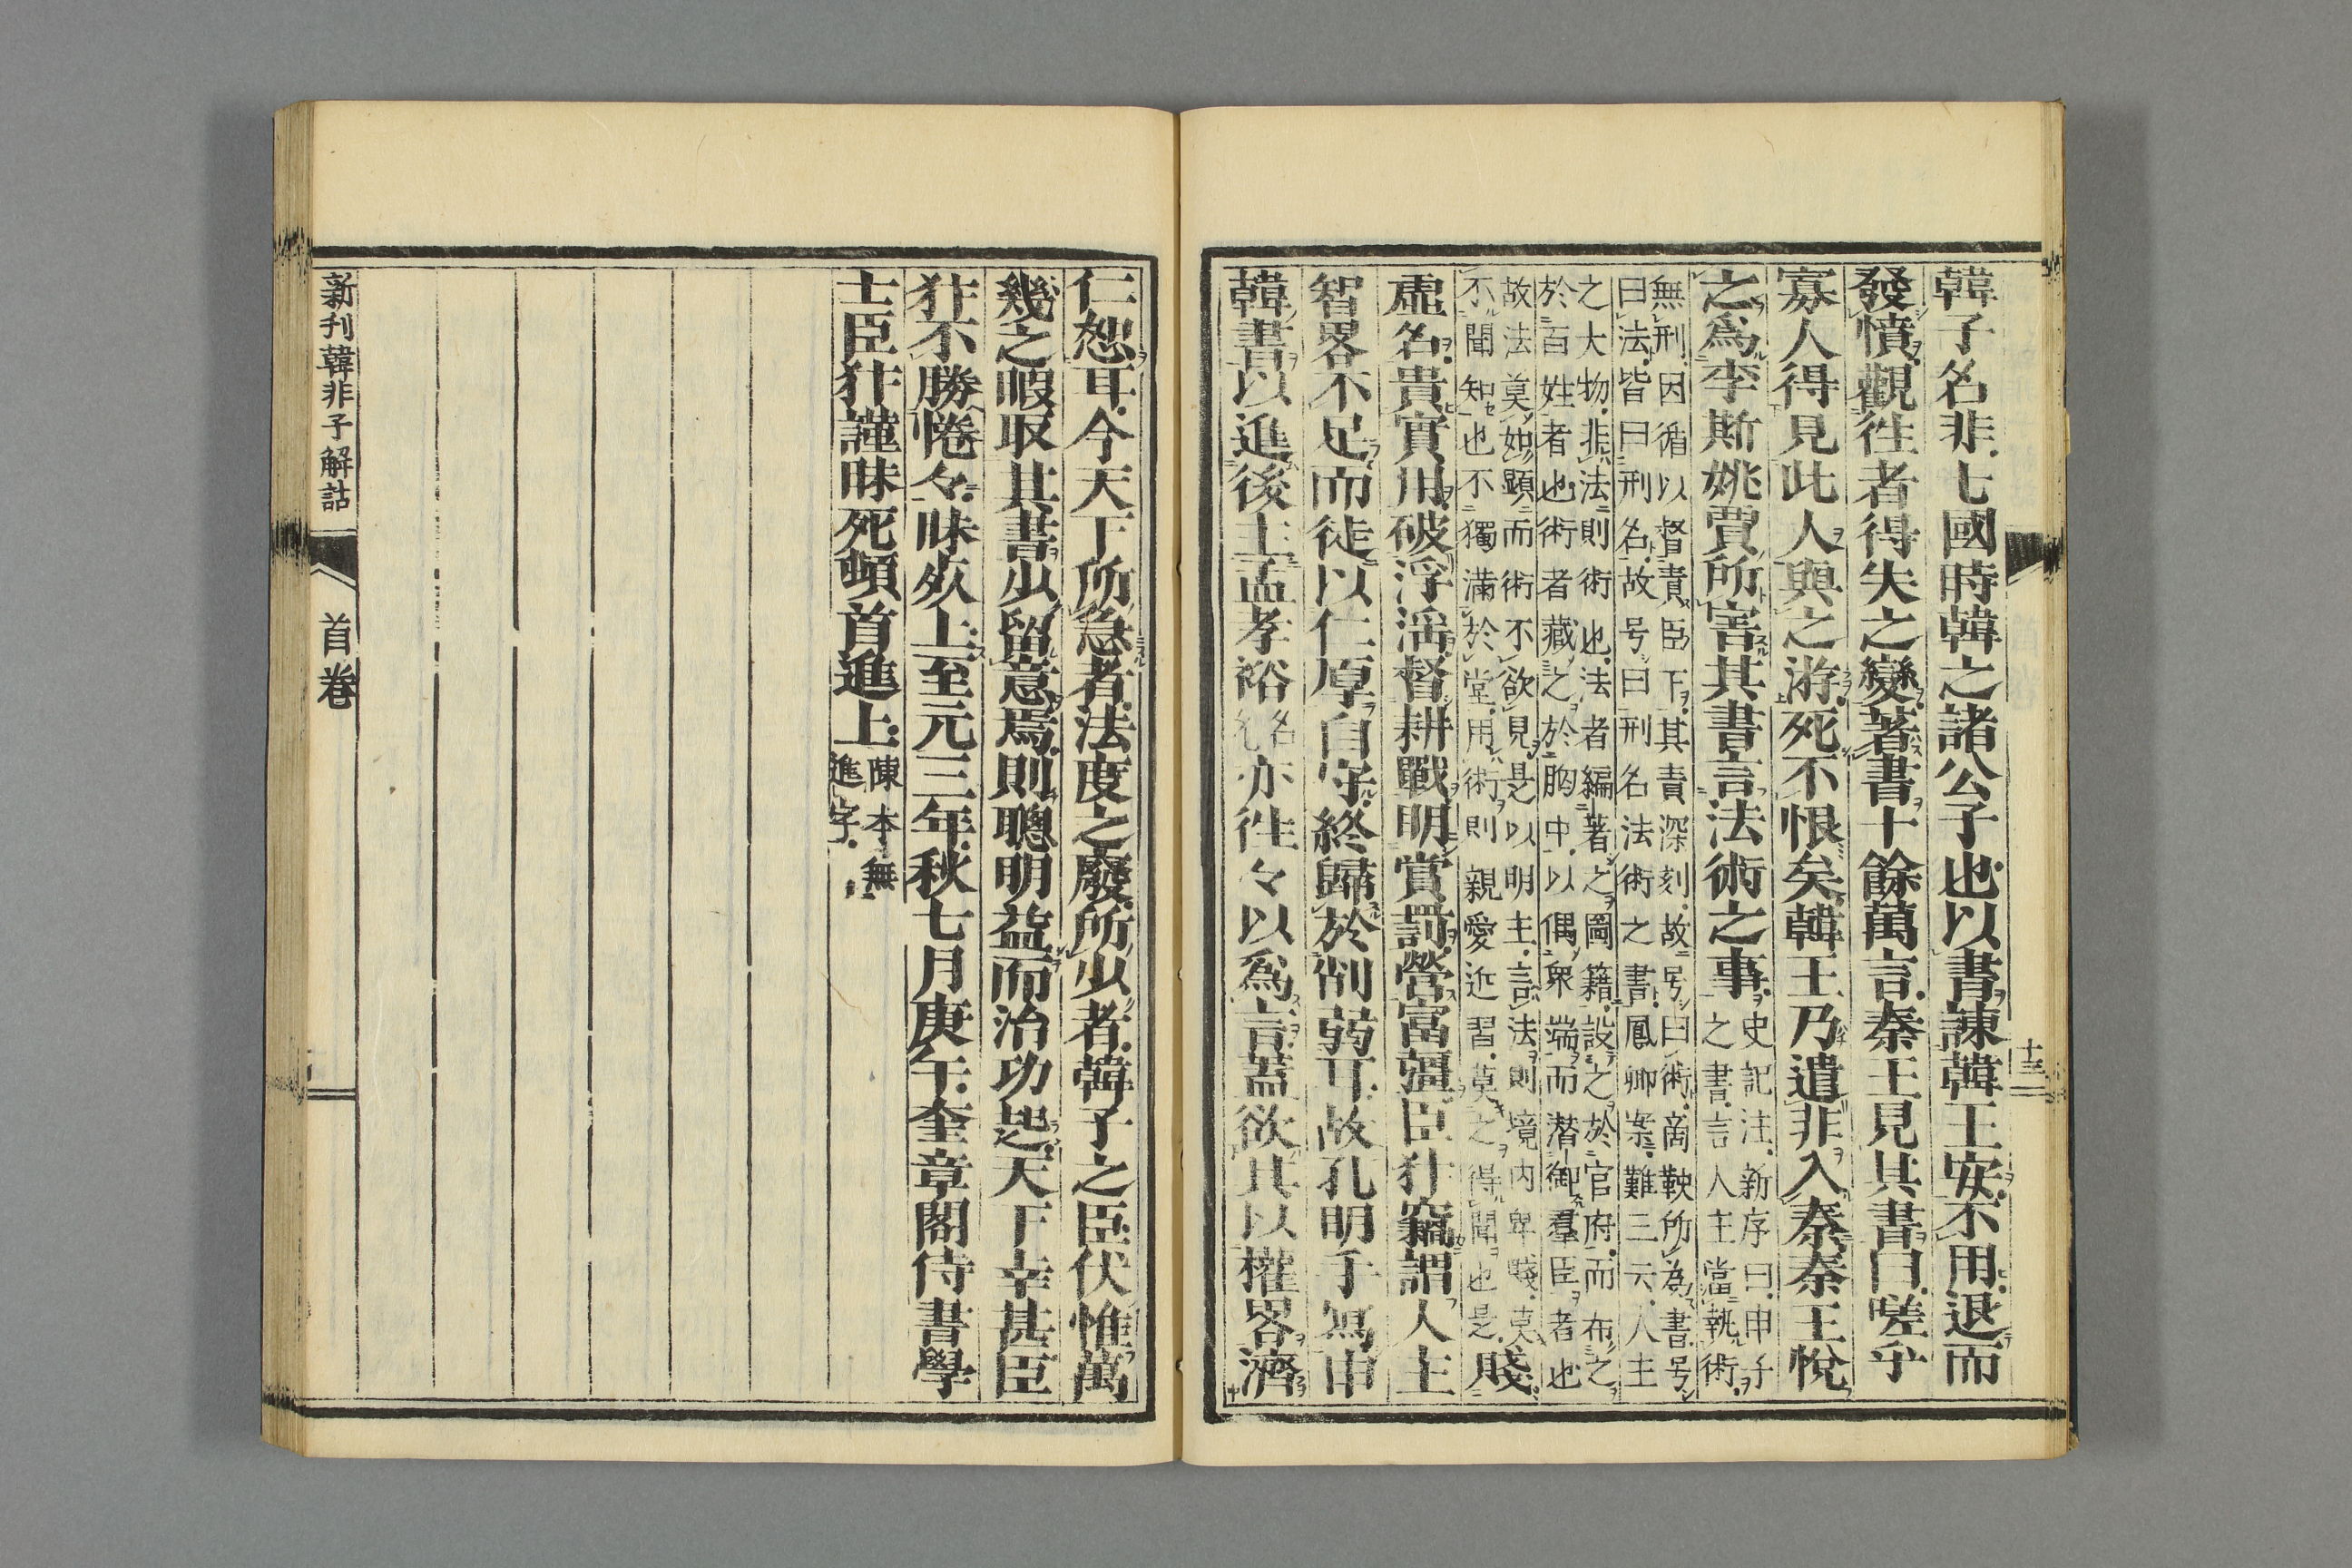 韓子名非七國時韓之諸公子也以書諫韓王安不用退而
發憤觀徃者得失之變著書十餘萬言秦王見其書曰嗟乎
寡人得見此人與之游死不恨矣韓王乃遣非入秦秦王悅
之爲李斯姚賈所害其書言法術之事
史記注新序曰申子
之書言人主當執術
無刑因循以督責臣下其責深刻故号曰術商鞅所為書号
曰法皆曰刑名故号曰刑名法術之書鳳卿案難三云人主
之大物非法則術也法者編著之圖籍設之於官府而布之
於百姓者也術者藏之於胸中以偶衆端而潛御羣臣者也
故法莫如顯而術不欲見是以明主言法則境内卑賤莫
不聞知也不獨滿於堂用術則親愛近習莫之得聞也是
賤
虛名貴實用破浮淫督耕戰明賞罰營富彊臣犿竊謂人主
智畧不足而徒以仁厚自守終歸於削弱耳故孔明手寫申
韓書以進後主孟孝裕亦徃々以爲言蓋欲其以權畧濟
十三
仁恕耳今天下所急者法度之廢所少者韓子之臣伏惟萬
幾之暇取其書少留意焉則聰明益而治功起天下幸甚臣
犿不勝惓々昧死上至元三年秋七月庚午奎章閣侍書學
士臣犿謹昧死頓首進上
陳本無
進字
新刊韓非子解詁
首卷